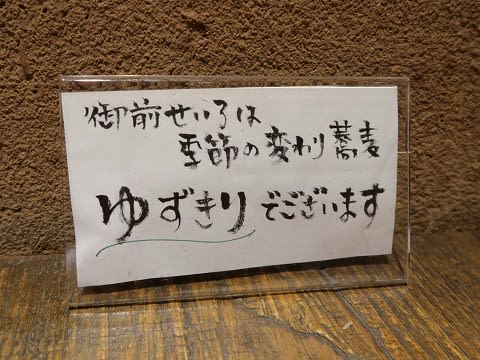 御前せいろは
季節の変わり蕎麦
ゆずきりでございます